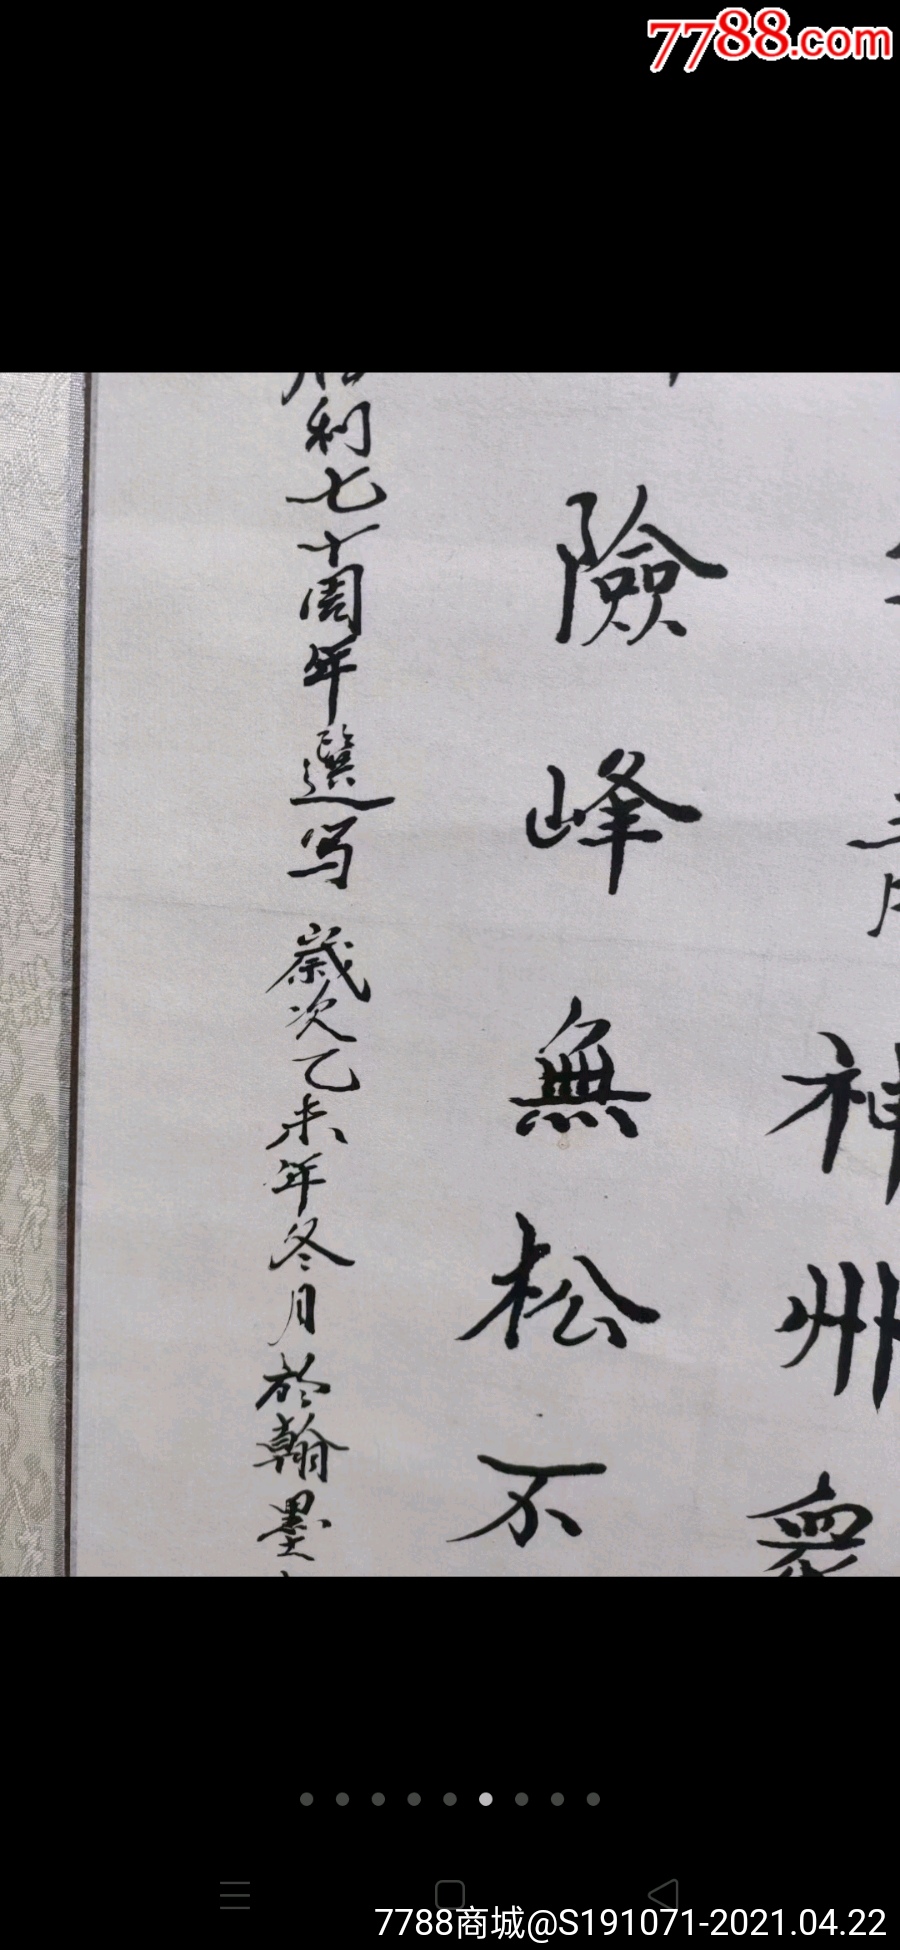 7788.com
神州
險峰無松不
利七十周年選写 歲次乙未年冬月於翰墨
7788商城@S191071-2021.04.22